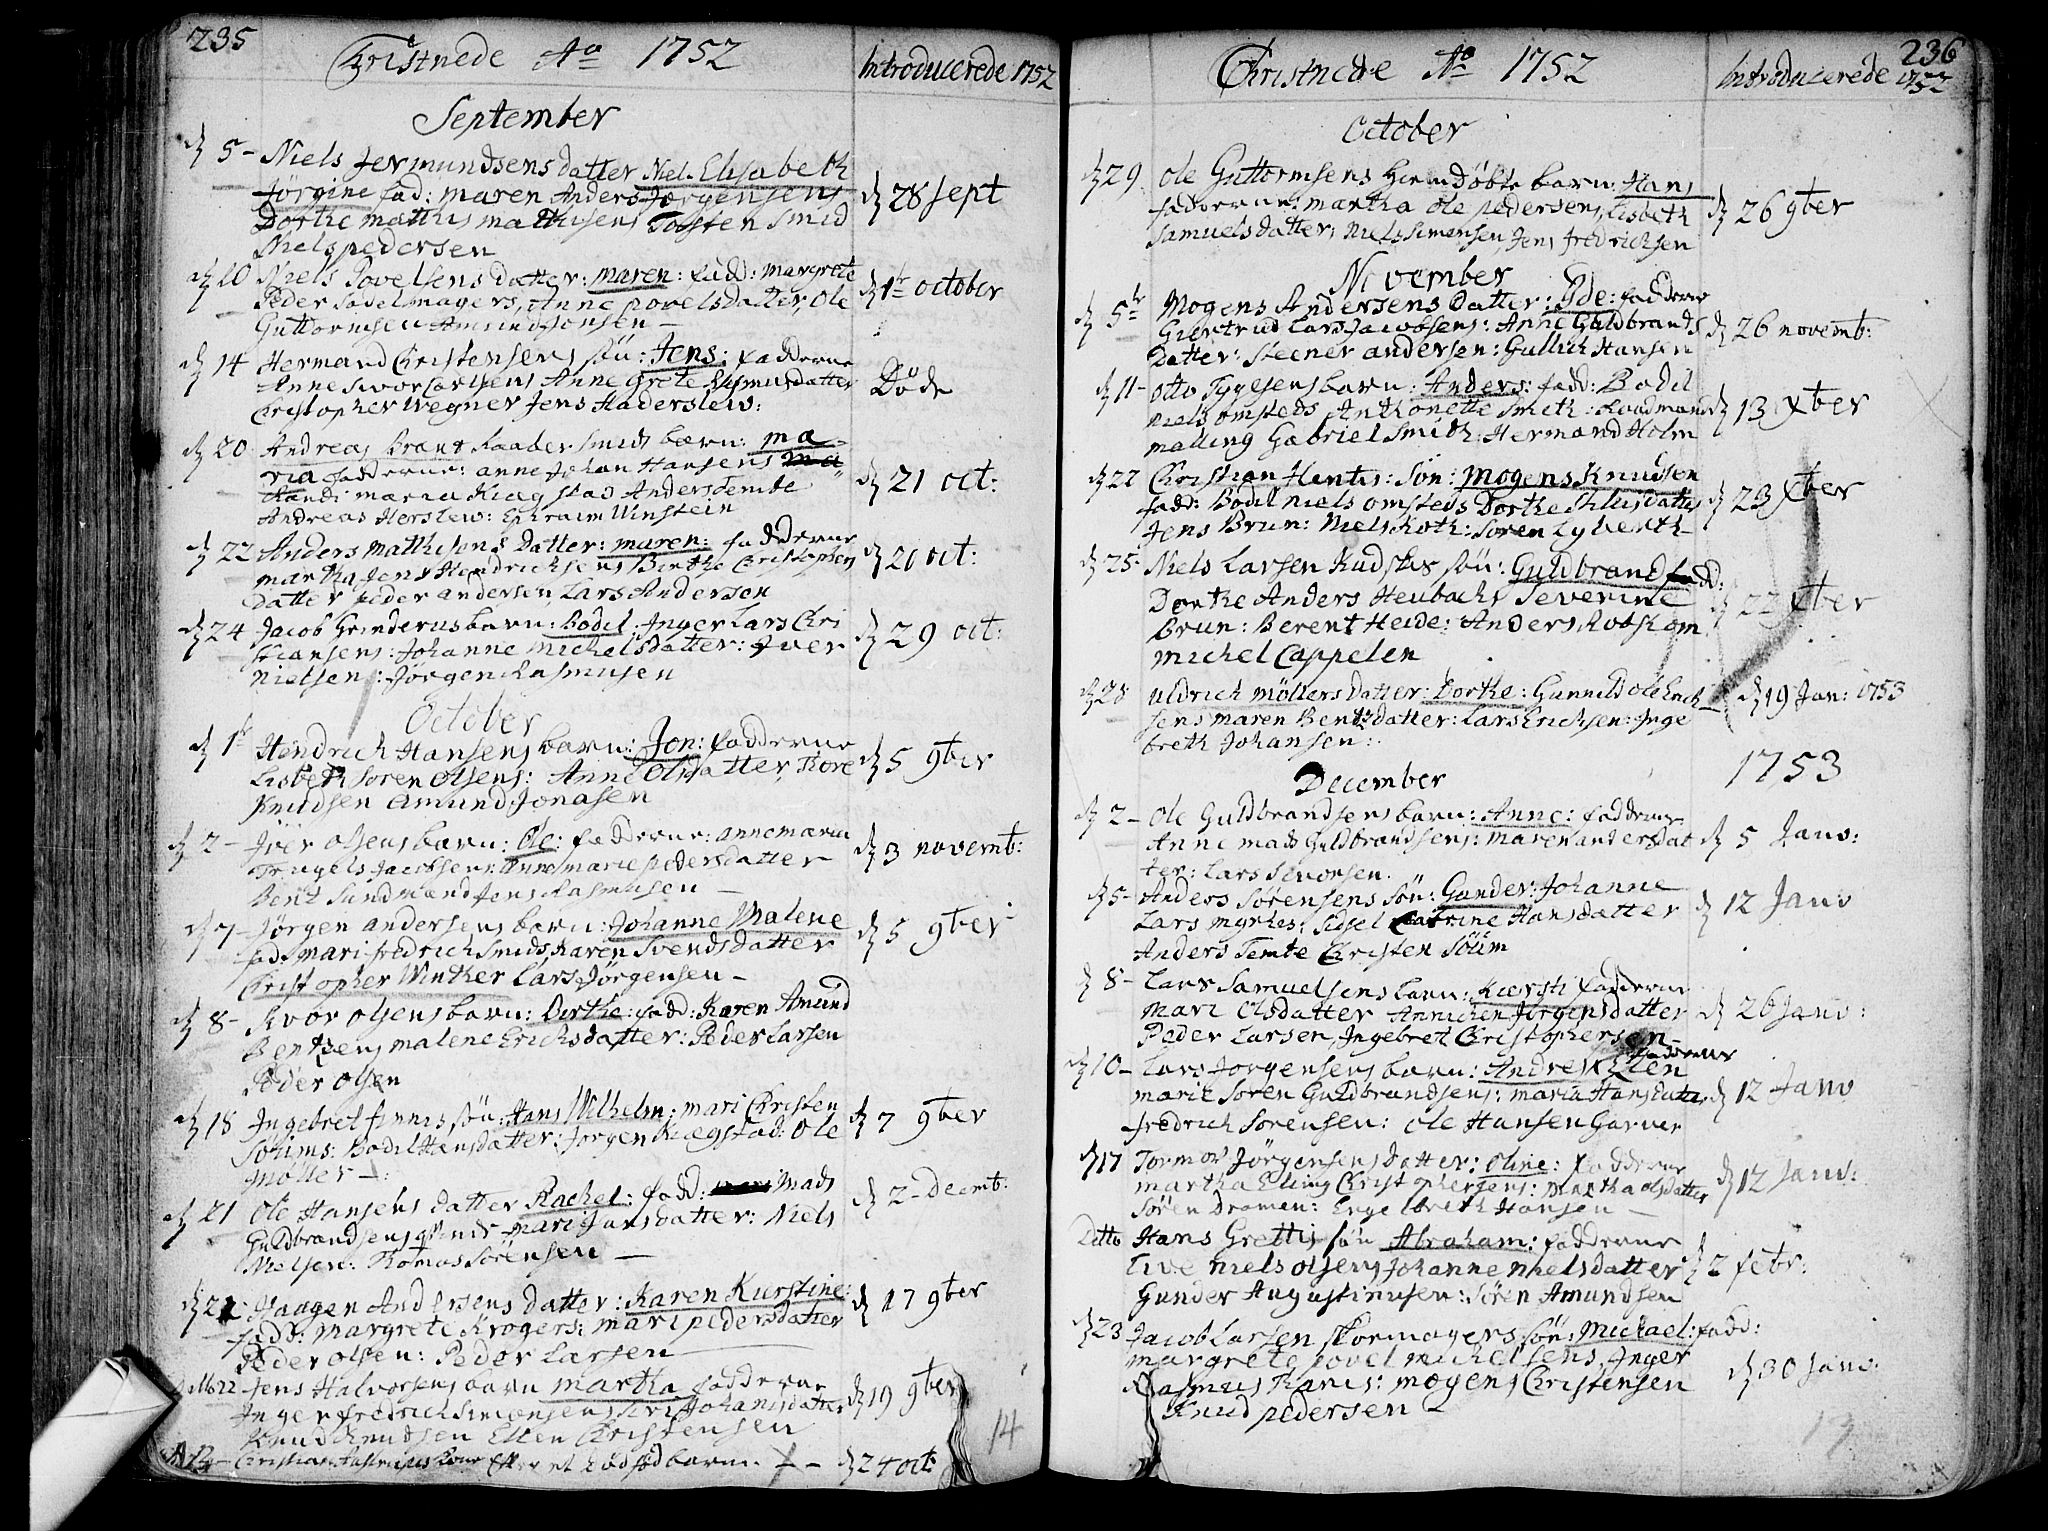 235
Christnede Ao 1752
Introducerede 1752
September
5 - Niels Jermundsens datter Niel. Elisabeth
Jørgine fad: maren Anders Jørgensens
Dorthe matthis matthisens Tosten Smid
Niels pedersen
28 sept
10 Niels Povelsens datter: maren: fadd: margrete
Peder Sadelmagers, Anne povelsdatter, Ole
Guttormsen Amund Jonsen -
1te october
14 Hermand Christensens sön: Jens: fadderne
Anne Grete Rasmusdatter
Christopher Wegner Jens Haderslew:
Døde
20 Andreas Brant Kaaber Smids barn: ma-
ria fadderne: anne Johan Hansens
Randi maria Kiegstad Anders Temte
Andreas Herslew: Ephraim Winstein
21 oct:
22 Anders Matthisens Datter: maren: fadderne
martha Jens Hendrichsens Birthe Christophers
datter peder andersen, Lars Andersen
20 oct:
24 Jacob Grinderus barn: Bodil. Inger Lars Chri
stiansens: Johanne Michelsdatter: Iver
Nielsen: Jörgen Rasmusen
29 oct:
October
1te Hendrich Hansens barn: Jon: fadderne
Lisbeth Soren Olsens: Anne Olsdatter, Tore
Knudsen Amund Jonasen
5 9ber
2 - Iver olsens barn: Ole: fadderne: anne maria
Trugels Jacobsens: Anne marie pedersdatter
Bent Sundmand Jens Rasmusen -
3 novemb:
7 - Jørgen andersens barn: Johanne Malene
fad: mari fredrich Smids, Karen Svendsdatter
Christopher Winther Lars Jörgensen -
5 9ber
8 - Halvor olsens barn: Dorthe: fadd: Karen Amund
Bentsens malene Erichsdatter: Peder Larsen
Peder olsen
18 Ingebret finnes sön: Hans Wilhelm: mari Christen
Solums: Bodil Hansdatter: Jorgen Kiegstad: Ole
møller -:
7 9ber
21 Ole Hansens datter Rachel: fadd: Mads
Guldbrandsens qvinde mari Jansdatter: Niels
Nielsen: Thomas Sörensen -
2 - Decmb:
21 Haagen Andersens datter: Karen Kirstine:
fadd: margrete Krogers: mari pedersdatter
Peder olsen: Peder Larsen
17 9ber
Ditto 22 Jens Halvorsens barn martha fadderne
Inger fredrich Simonsens Siri Johannisdatter
Knud Knudsen Ellen Christensen
19 9ber
Christian kone efter et dödföd barn. -
24 oct:
14
236
Christnede Ao 1752
Introducerede 1752
October
29 Ole Guttormsens Hiemdøbte barn: Hans
fadderne: martha Ole pedersens, Lisbeth
Samuelsdatter, Niels Simensen, Jens fredrichsen
26 9ber
November
5te Mogens Andersens Datter: Ide: fadderne
Giertrud Lars Jacobsens: Anne Guldbrands
Datter: Steener andersen: Gullich Hansen
26 novemb:
11 - Otto Tygesens barn: Anders: fadd: Bodil
Niels omsteds Anthonette Smith: Raadmand
malling Gabriel Smith: Hermand Holm
13 Xber
22 Christian Hentis: Sön: Mogens Knudsen
fadd: Bodil niels omsteds Dorthe Nilsdatter
Jens Brun: Niels Roth: Soren Lybenth
23 Xber
25 Niels Larsen Rudstes søn: Guldbrand fadd:
Dorthe Anders Heubachs Severine
Brun: Berent Heide: Anders Robshom
Michel Cappelen
22 Xber
28 Uldrich möllers datter: Dorthe: Gunnild Ole Erich
sens maren Bentsdatter: Lars Erichsen: Inge
breth Johansen:
19 Jan: 1753
1753
December
2 - Ole Guldbrandsens barn: Anne: fadderne
Anne mads Guldbrandsens: maren andersdat
ter: Lars Sivorsen.
5 Janv:
5 - Anders Sörensens sön: Gunder: Johanne
Lars myrhes: Sidsel Catrine Hansdatter
Anders Temte Christen Solum
12 Janv
8 - Lars Samuelsens barn: Kiersti fadderne
Mari Olsdatter Annichen Jørgensdatter
Peder Larsen, Ingebret Christophersen
26 Janv:
10 - Lars Jorgensens barn: Andre Ellen fadderne
marie Soren Guldbrandsens: maria Hansdatter
fredrich Sorensen: Ole Hansen Garver
12 Janv
17 Tormor Jörgensens datter: Oline: fadderne
martha Elling Christophersens: martha olsdatter
Sören Dramen: Engelbreth Hansen -
12 Janv:
Ditto Hans Grettis sön Abraham: fadderne
Live niels olsens Johanne nielsdatter
Gunder Augustinusen: Søren Amundsen
2 febr:
23 Jacob Larsen skomagers sön: Michael: fadd:
margrete povel michelsens, Inger
Rasmus Thanis: mogens Christensen
Knud pedersen -
30 Janv: